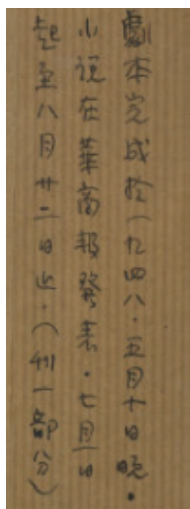 劇本完成於一九四八·五月十日晚。
小說在華商報發表·七月一日
起至八月廿二日止·（刊一部分）